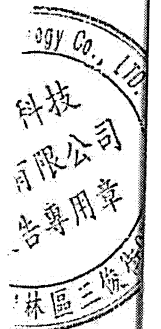 ogy Co., LTD.
科技
有限公司
告專用章
林區三俊街